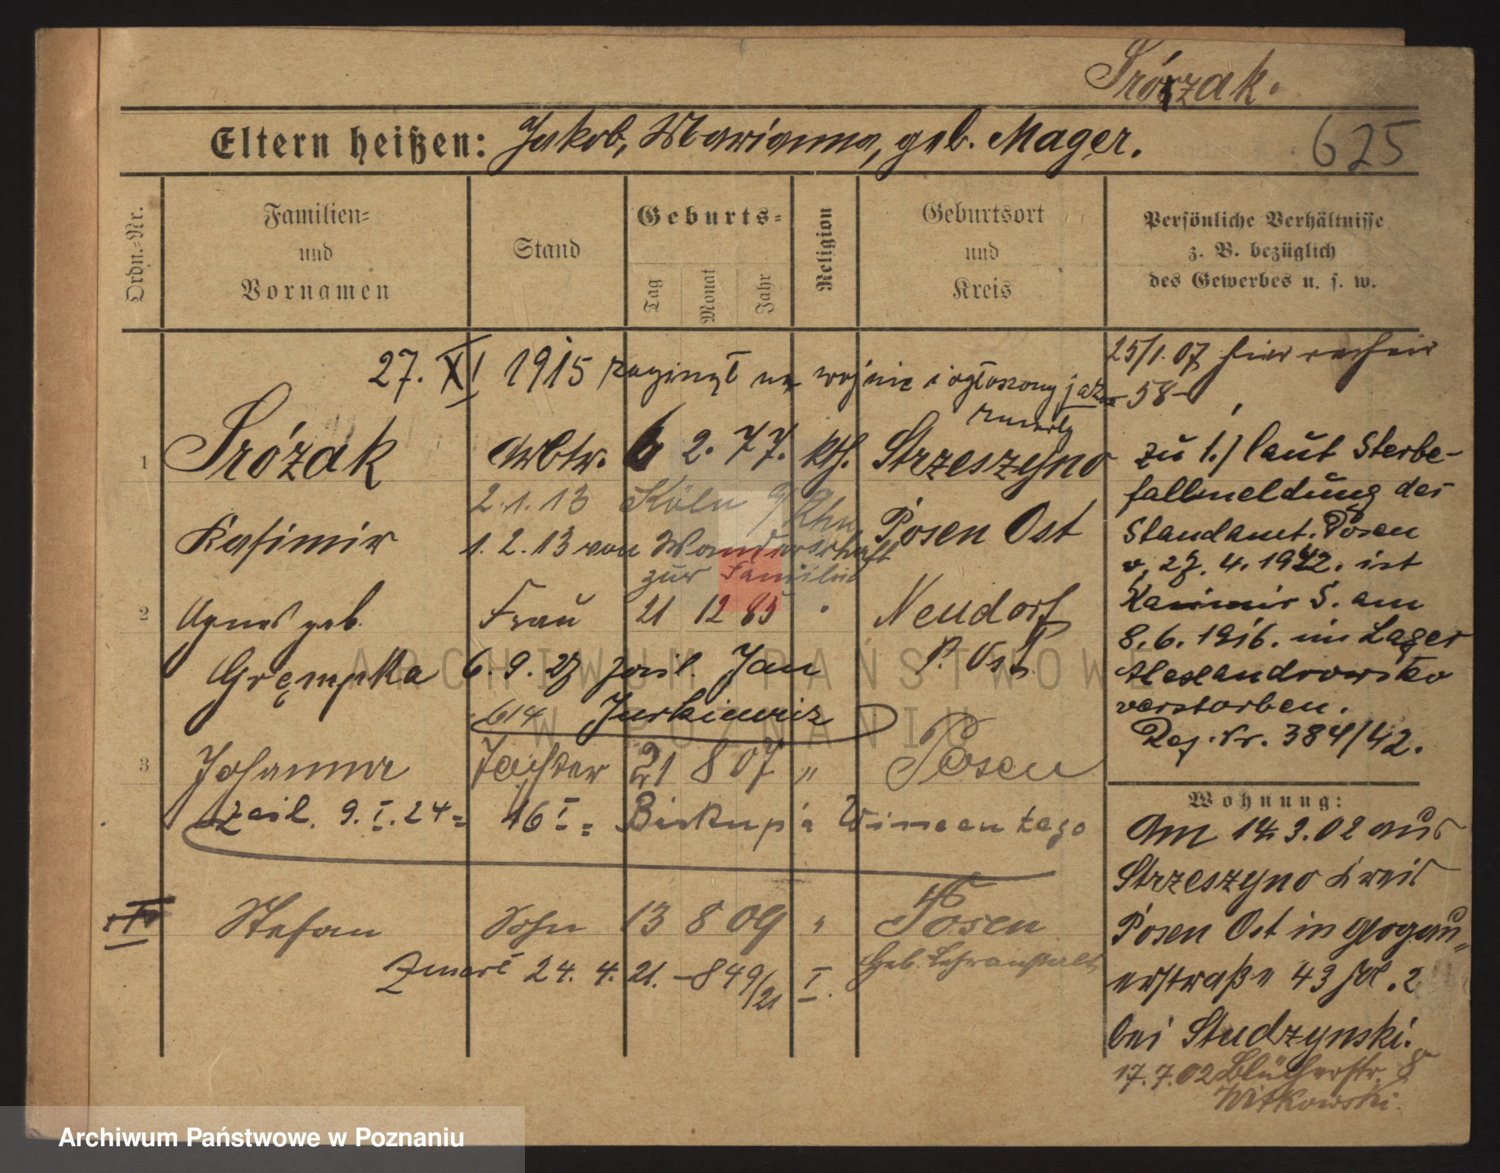 Srózak.
Eltern heißen: Jakob, Marianna, geb. Mager.
625
Ordn.=Nr.
Familien=
und
Vornamen
Stand
Geburts=
Tag
Monat
Jahr
Religion
Geburtsort
und
Kreis
Persönliche Verhältnisse
z. B. bezüglich
des Gewerbes u. s. w.
27. XI 1915 zaginął na wojnie i ogłoszony jako
zmarły
25/1.07
-58-
1 Srózak Arbtr. 6 2. 77. kth. Strzeszyno
2.1.13 Köln a/Rhn
Kasimir Posen Ost
1.2.13 von Wanderschaft
zur Familie
2 Agnes geb. Frau 21 12 85 Neudorf
Grempka P. Ost
6.9.27 zasl. Jan
614 Jurkiewicz
3 Johanna Tochter 21 8 07 " Posen
zasl. 9.I.24= 16 I= Biskup
Stefan Sohn 13 8 09 " Posen
Zmarł 24.4.21. -849/21 I.
Geb. Lehranstalt
zu 1.) laut Sterbe-
fallmeldung des
Standamt. Posen
v. 27.4.1942. ist
Kasimir S. am
8.6.1916. im Lager
Alexandrowsko
verstorben.
Reg. Nr. 384/42.
Wohnung:
Am 14.3.02 aus
Strzeszyno Kreis
Posen Ost in Glogau=
erstraße 43
bei Studzynski.
17.7.02 Blücherstr. 8
Witkowski.
ARCHIWUM PAŃSTWOWE
W POZNANIU
Archiwum Państwowe w Poznaniu